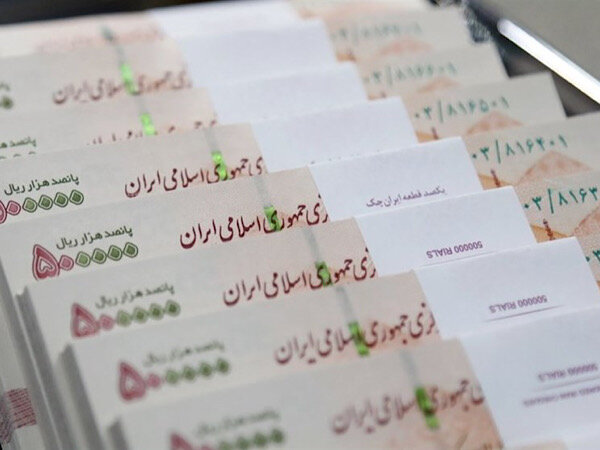 جمهوری اسلامی ایران
۰۳/۸۱۶۵۰۱
ی اسلامی ایران
۳/۸۱۶۴۰۱
پانصد هزار ریال
زی جمهوری اسلامی ایران
یکصد قطعه ایران چک
۰۳/۸۱۶۳
پانصد هزار ریال
۵۰۰۰۰۰
زی جمهوری اسلامی ایران
500000 RIALS
پانصد هزار ریال
۵۰۰۰۰۰
زی جمهوری اسلامی ایران
500000 RIALS
پانصد هزار ریال
۵۰۰۰۰۰
زی جمهوری اسلامی ایران
500000 RIALS
پانصد هزار ریال
۵۰۰۰۰۰
جمهوری اسلامی ایران